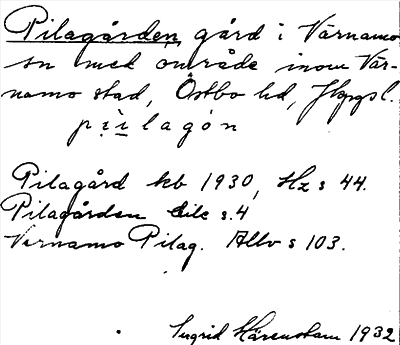 Pilagården, gård i Värnamo
sn med område inom Vär-
namo stad, Östbo hd, Jkpgsl.
pìilagón
Pilagård kb 1930, Hz s 44.
Pilagården s. 4
Vernamo Pilag. Allv s 103.
Ingrid Hårenstam 1932